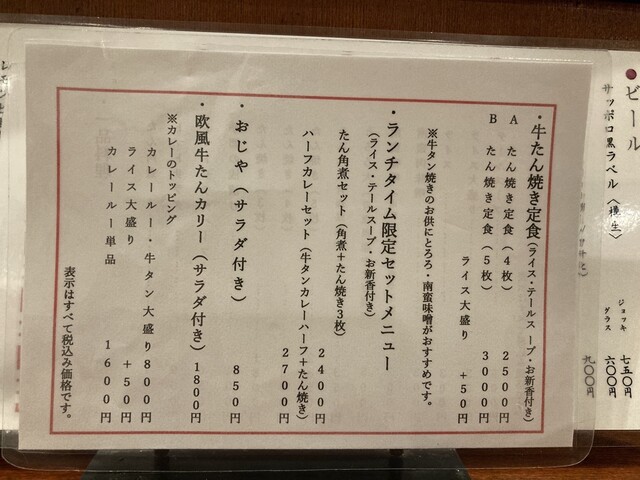 ●ビール
サッポロ黒ラベル〈樽生〉
ジョッキ 七五〇円
グラス 六〇〇円
九〇〇円
・牛たん焼き定食(ライス・テールスープ・お新香付き)
A たん焼き定食(4枚) 2500円
B たん焼き定食(5枚) 3000円
ライス大盛り +50円
※牛タン焼きのお供にとろろ・南蛮味噌がおすすめです。
・ランチタイム限定セットメニュー
(ライス・テールスープ・お新香付き)
たん角煮セット(角煮+たん焼き3枚)
2400円
ハーフカレーセット(牛タンカレーハーフ+たん焼き)
2700円
・おじや(サラダ付き) 850円
・欧風牛たんカリー(サラダ付き) 1800円
※カレーのトッピング
カレールー・牛タン大盛り 800円
ライス大盛り +50円
カレールー単品 1600円
表示はすべて税込み価格です。